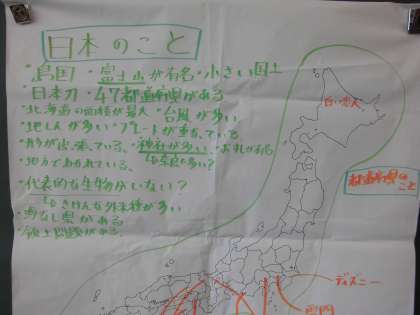 日本のこと
・島国 ・富士山が有名・小さい国土
・日本刀・47都道府県がある
・北海道の面積が最大・台風が多い
・地しんが多い・プレートが重なっている
神社が多い
奈良に多い?
・地方で分かれている、
・代表的な生物がいない?
きけんな外来種が多い
・海なし県がある
・領土問題がある
白い恋人
都道府県の
こと
ディズニー